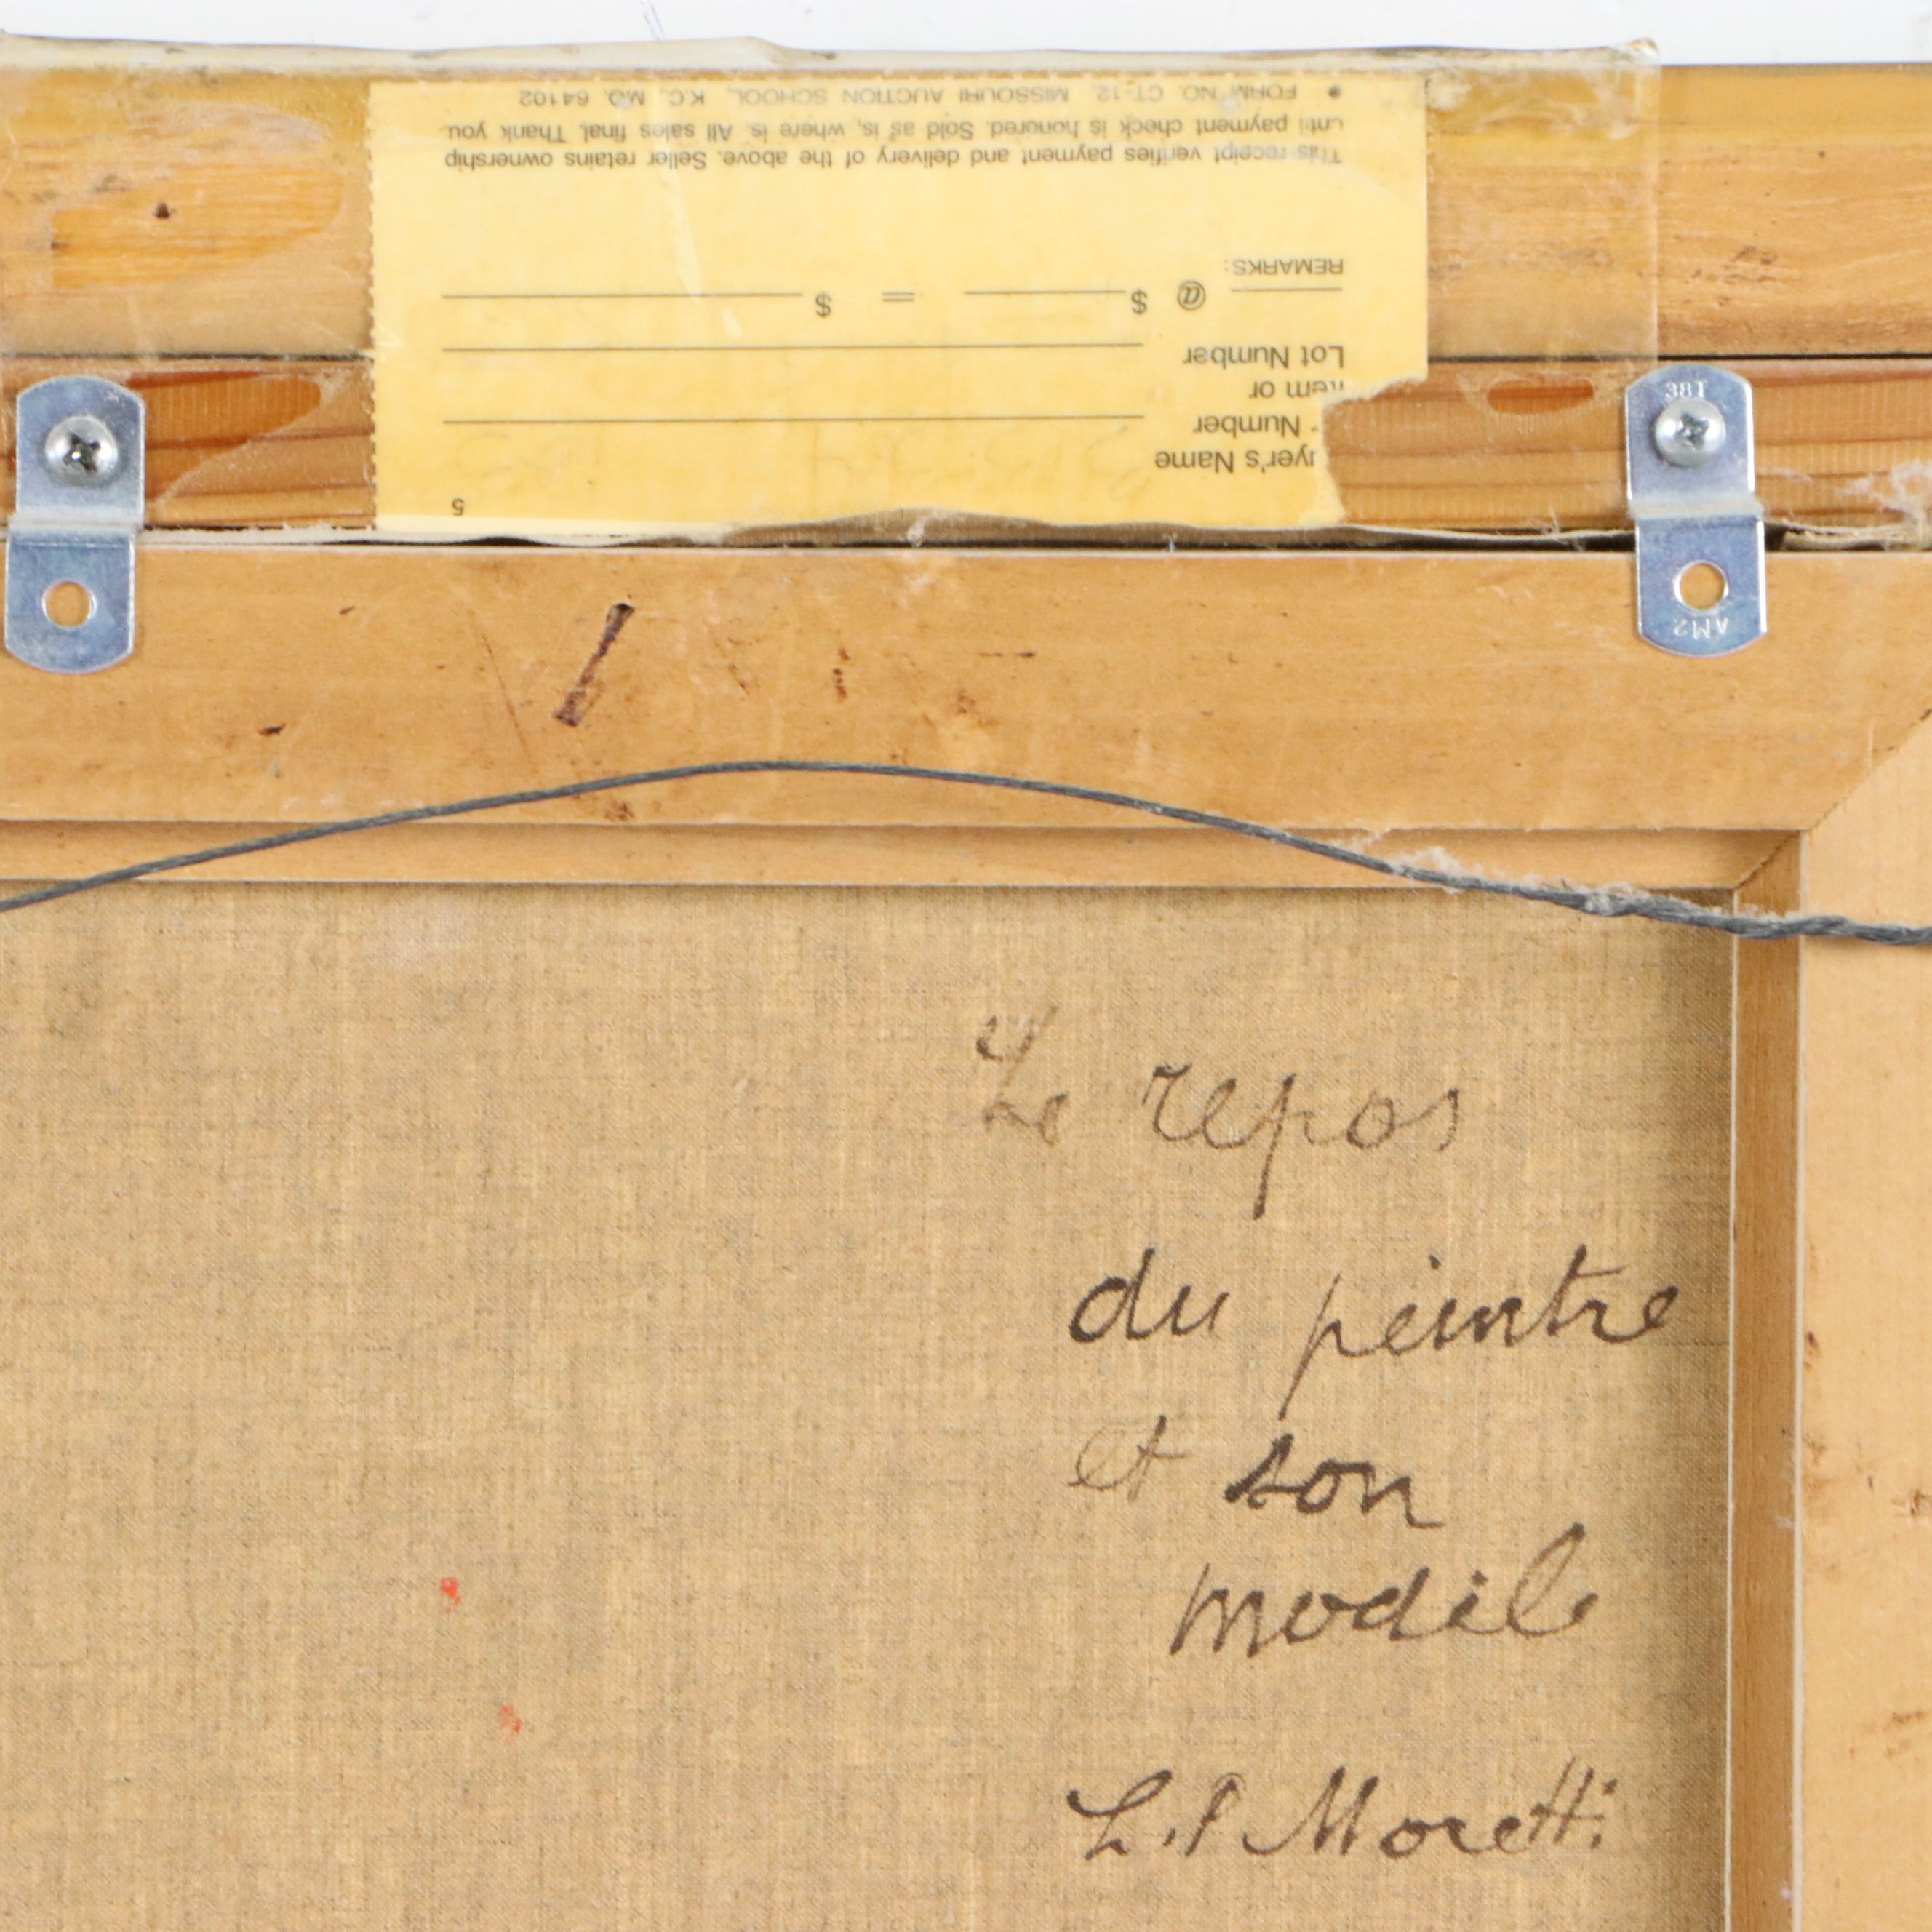 • FORM NO. CT-12, MISSOURI AUCTION SCHOOL, K.C., MO. 64102
until payment check is honored. Sold as is, where is. All sales final. Thank you
This receipt verifies payment and delivery of the above. Seller retains ownership
REMARKS:
@ $ = $
Lot Number
Item or
Number
yer's Name
5
38T
AM2
Le repos
du peintre
et son
modèle
L.P Moretti